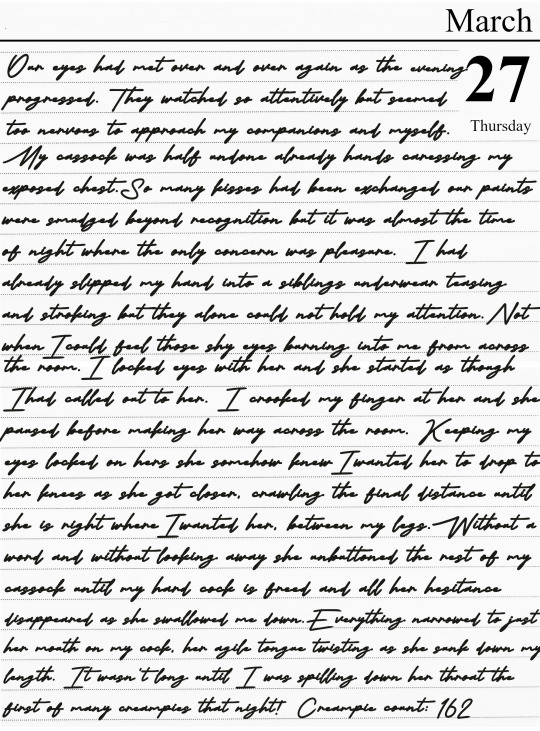 March
27
Thursday
Our eyes had met over and over again as the evening
progressed. They watched so attentively but seemed
too nervous to approach my companions and myself.
My cassock was half undone already hands caressing my
exposed chest. So many kisses had been exchanged our paints
were smudged beyond recognition but it was almost the time
of night where the only concern was pleasure. I had
already slipped my hand into a siblings underwear teasing
and stroking but they alone could not hold my attention. Not
when I could feel those shy eyes burning into me from across
the room. I locked eyes with her and she started as though
I had called out to her. I crooked my finger at her and she
paused before making her way across the room. Keeping my
eyes locked on hers she somehow knew I wanted her to drop to
her knees as she got closer, crawling the final distance until
she is right where I wanted her, between my legs. Without a
word and without looking away she unbuttoned the rest of my
cassock until my hard cock is freed and all her hesitance
disappeared as she swallowed me down. Everything narrowed to just
her mouth on my cock, her agile tongue twisting as she sunk down my
length. It wasn't long until I was spilling down her throat the
first of many creampies that night! Creampie count: 162